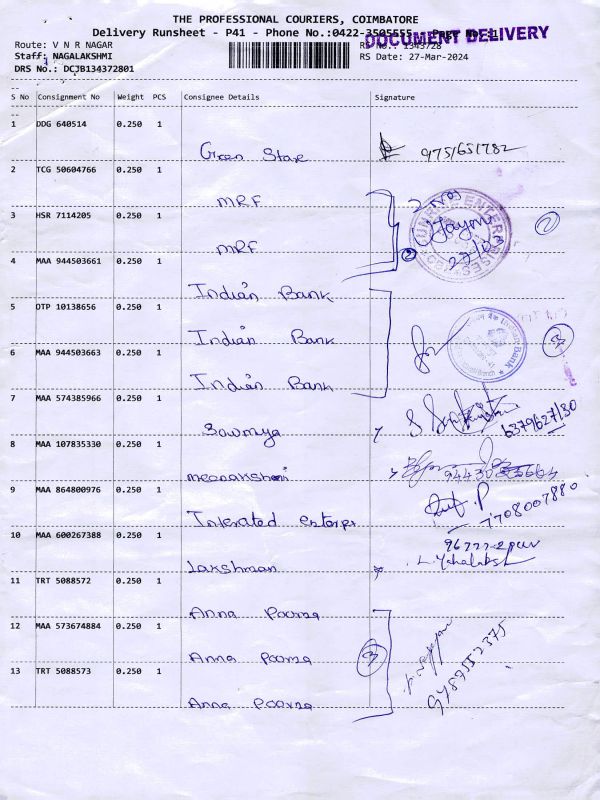 THE PROFESSIONAL COURIERS, COIMBATORE
Delivery Runsheet - P41 - Phone No.:0422-3505555
DOCUMENT DELIVERY
Route: V N R NAGAR
RS No.: 1343728
Staff: NAGALAKSHMI
RS Date: 27-Mar-2024
DRS No.: DCJB134372801
S No Consignment No Weight PCS Consignee Details Signature
1 DDG 640514 0.250 1
Green Star 9751651782
2 TCG 50604766 0.250 1
MRF 2 Nos
3 HSR 7114205 0.250 1
MRF 27/03 2 2
4 MAA 944503661 0.250 1
Indian Bank
5 DTP 10138656 0.250 1
Indian Bank 3
6 MAA 944503663 0.250 1
Indian Bank
7 MAA 574385966 0.250 1
Sowmya 6379627130
8 MAA 107835330 0.250 1
meenakshmi
9 MAA 864800976 0.250 1
Interated enterpr 7708007880
10 MAA 600267388 0.250 1
Lakshman
11 TRT 5088572 0.250 1
Anna Poorna
12 MAA 573674884 0.250 1
Anna Poorna 3
13 TRT 5088573 0.250 1
Anna Poorna